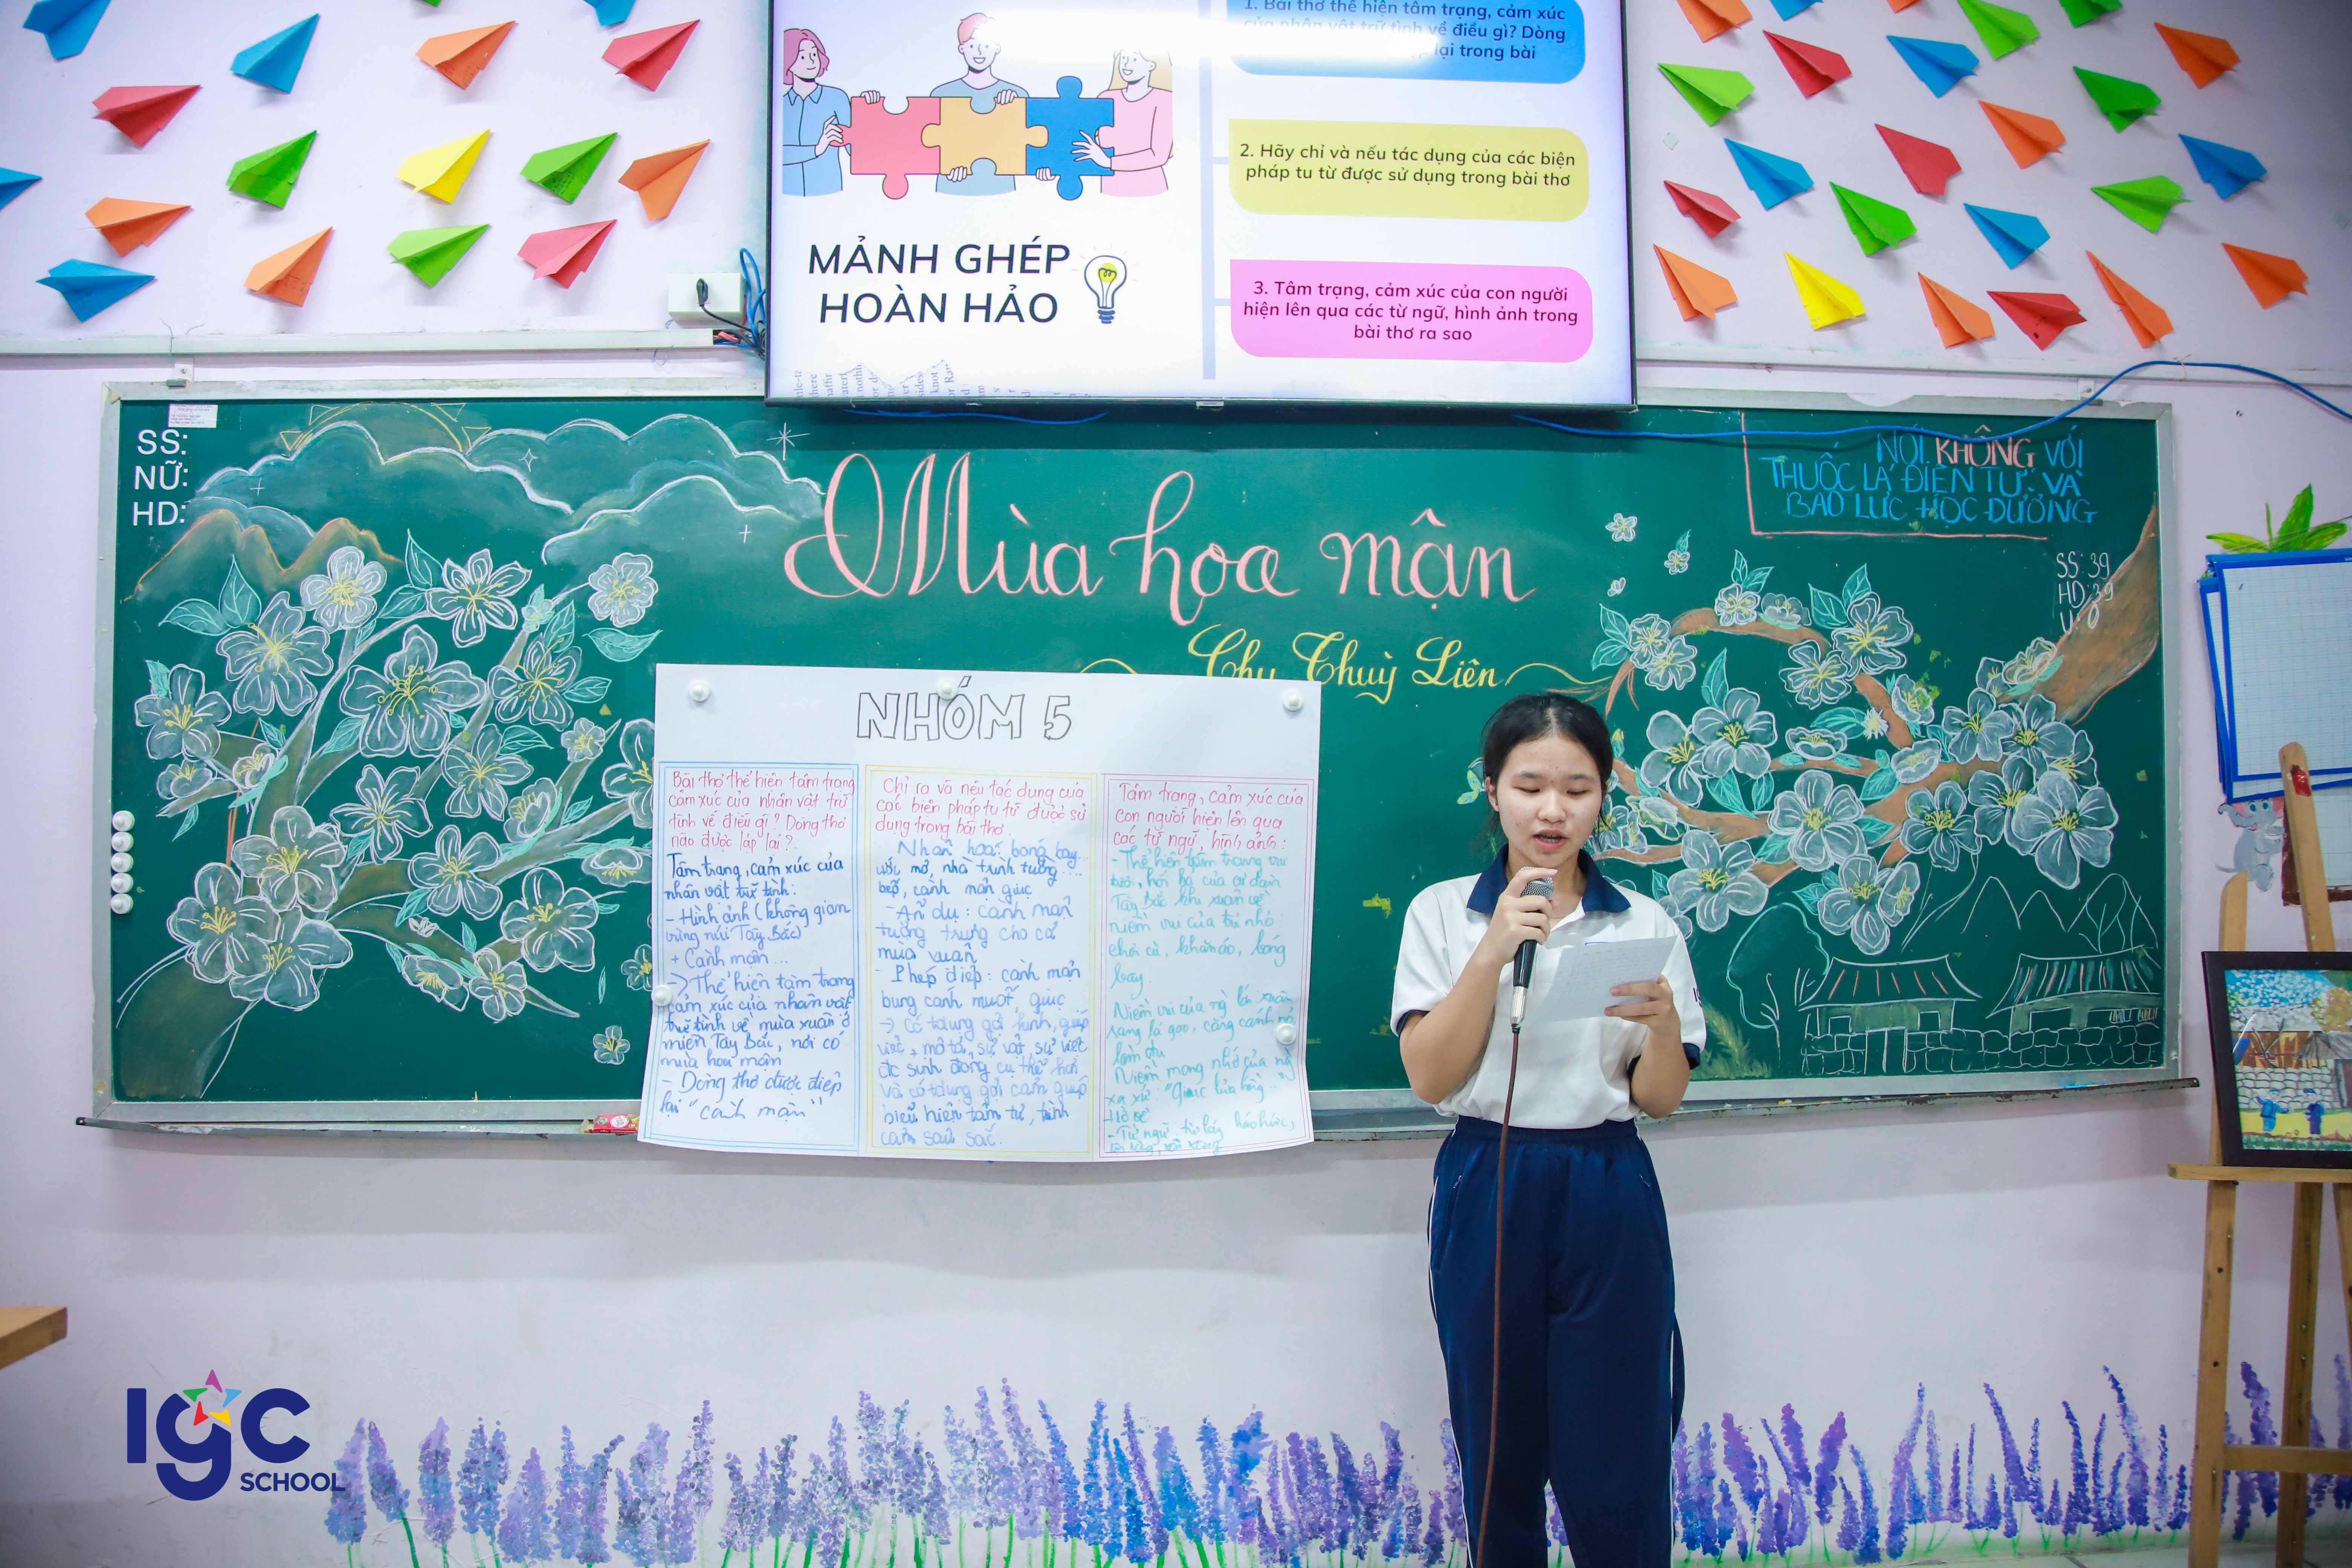 1. Bài thơ thể hiện tâm trạng, cảm xúc
của nhân vật trữ tình về điều gì? Dòng
lại trong bài
2. Hãy chỉ và nếu tác dụng của các biện
pháp tu từ được sử dụng trong bài thơ
MẢNH GHÉP
HOÀN HẢO
3. Tâm trạng, cảm xúc của con người
hiện lên qua các từ ngữ, hình ảnh trong
bài thơ ra sao
SS:
NỮ:
HD:
NÓI KHÔNG VỚI
THUỐC LÁ ĐIỆN TỬ VÀ
BẠO LỰC HỌC ĐƯỜNG
SS: 39
HD: 39
Mùa hoa mận
Chu Thuỳ Liên
NHÓM 5
Bài thơ thể hiện tâm trạng
cảm xúc của nhân vật trữ
tình về điều gì? Dòng thơ
nào được lặp lại?
Tâm trạng, cảm xúc của
nhân vật trữ tình:
- Hình ảnh (không gian
vùng núi Tây Bắc)
+ Cành mận...
-> Thể hiện tâm trạng
cảm xúc của nhân vật
trữ tình về mùa xuân ở
miền Tây Bắc, nơi có
mùa hoa mận
- Dòng thơ được điệp
lại "cành mận"
Chỉ ra và nêu tác dụng của
các biện pháp tu từ được sử
dụng trong bài thơ.
Nhân hoá: bóng bay
ước mơ, nhà trình tường...
cành mận giục
- Ẩn dụ: cành mận
tượng trưng cho cả
mùa xuân
- Phép điệp: cành mận
bung cánh muốt, giục
-> Có tdụng gợi hình, giúp
việc mô tả sự vật, sự việc
đc sinh động, cụ thể hơn
và có tdụng gợi cảm giúp
biểu hiện tâm tư, tình
cảm sâu sắc.
Tâm trạng, cảm xúc của
con người hiện lên qua
các từ ngữ, hình ảnh:
- Thể hiện tâm trạng vui
tươi, hối hả của
Tây Bắc khi xuân về
niềm vui của trẻ nhỏ
chơi cù, khăn áo, bóng
bay.
Niềm vui của
lá gạo, căng cánh nỏ
làm đu
Niềm mong nhớ của
xa xứ: "Giục
- Từ ngữ, từ láy: háo hức,
IGC
SCHOOL